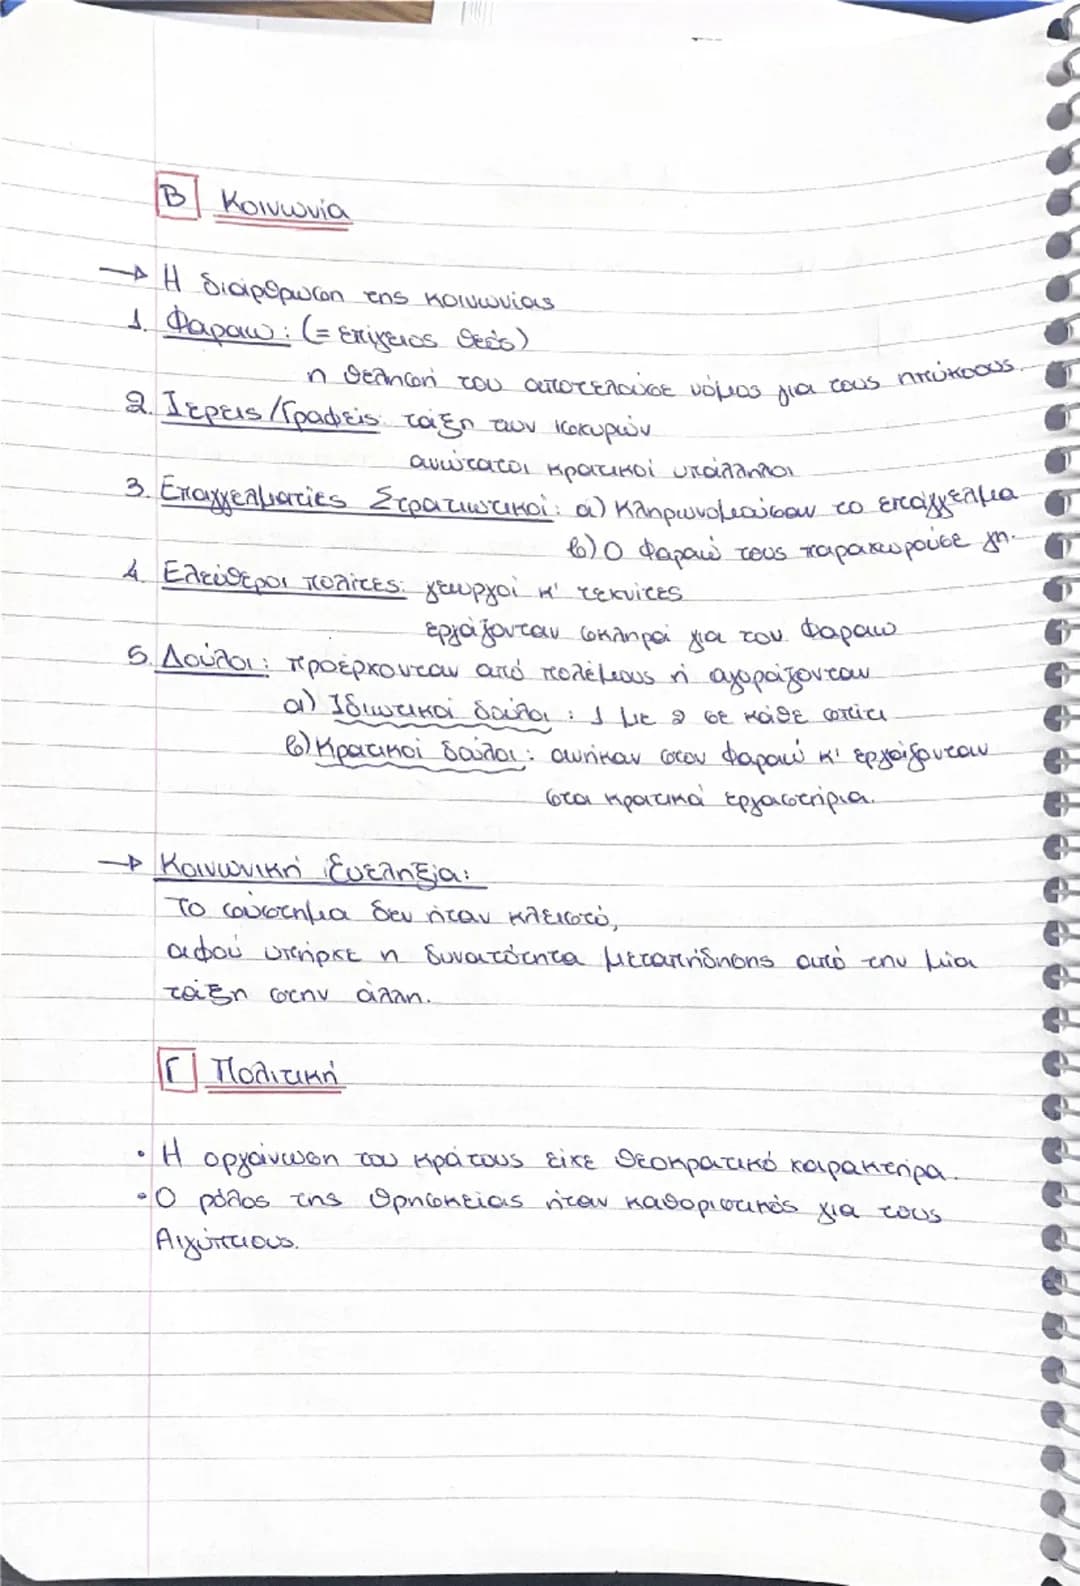 Β Κοινωνία
→ Η διάρθρωση της κοινωνίας
1. Φαραω: (= επίγειος θεός)
η θέληση του αποτελούσε νόμος για τους υπηκόους.
2. Ιερείς/Γραφείς: τάξη των ισχυρών
ανώτατοι κρατικοί υπάλληλοι
3. Επαγγελματίες Στρατιωτικοί: α) Κληρωνομούσαν το επάγγελμα
β) Ο Φαραώ τους παραχωρούσε γη.
4. Ελεύθεροι πολίτες: γεωργοί κ' τεχνίτες
εργάζονταν σκληρά για τον Φαραω
5. Δούλοι: προέρχονταν από πολέμους ή αγοράζονταν
α) Ιδιωτικοί δούλοι: 1 με 2 σε κάθε σπίτι
β) Κρατικοί δούλοι: ανήκαν στον Φαραώ κ' εργάζονταν
στα κρατικά εργαστήρια.
→ Κοινωνική Ευεληξία:
Το σύστημα δεν ήταν κλειστό,
αφού υπήρχε η δυνατότητα μεταπήδησης από την μία
τάξη στην άλλη.
Γ Πολιτική
• Η οργάνωση του κράτους είχε θεοκρατικό χαρακτήρα.
• Ο ρόλος της θρησκείας ήταν καθοριστικός για τους
Αιγύπτιους.